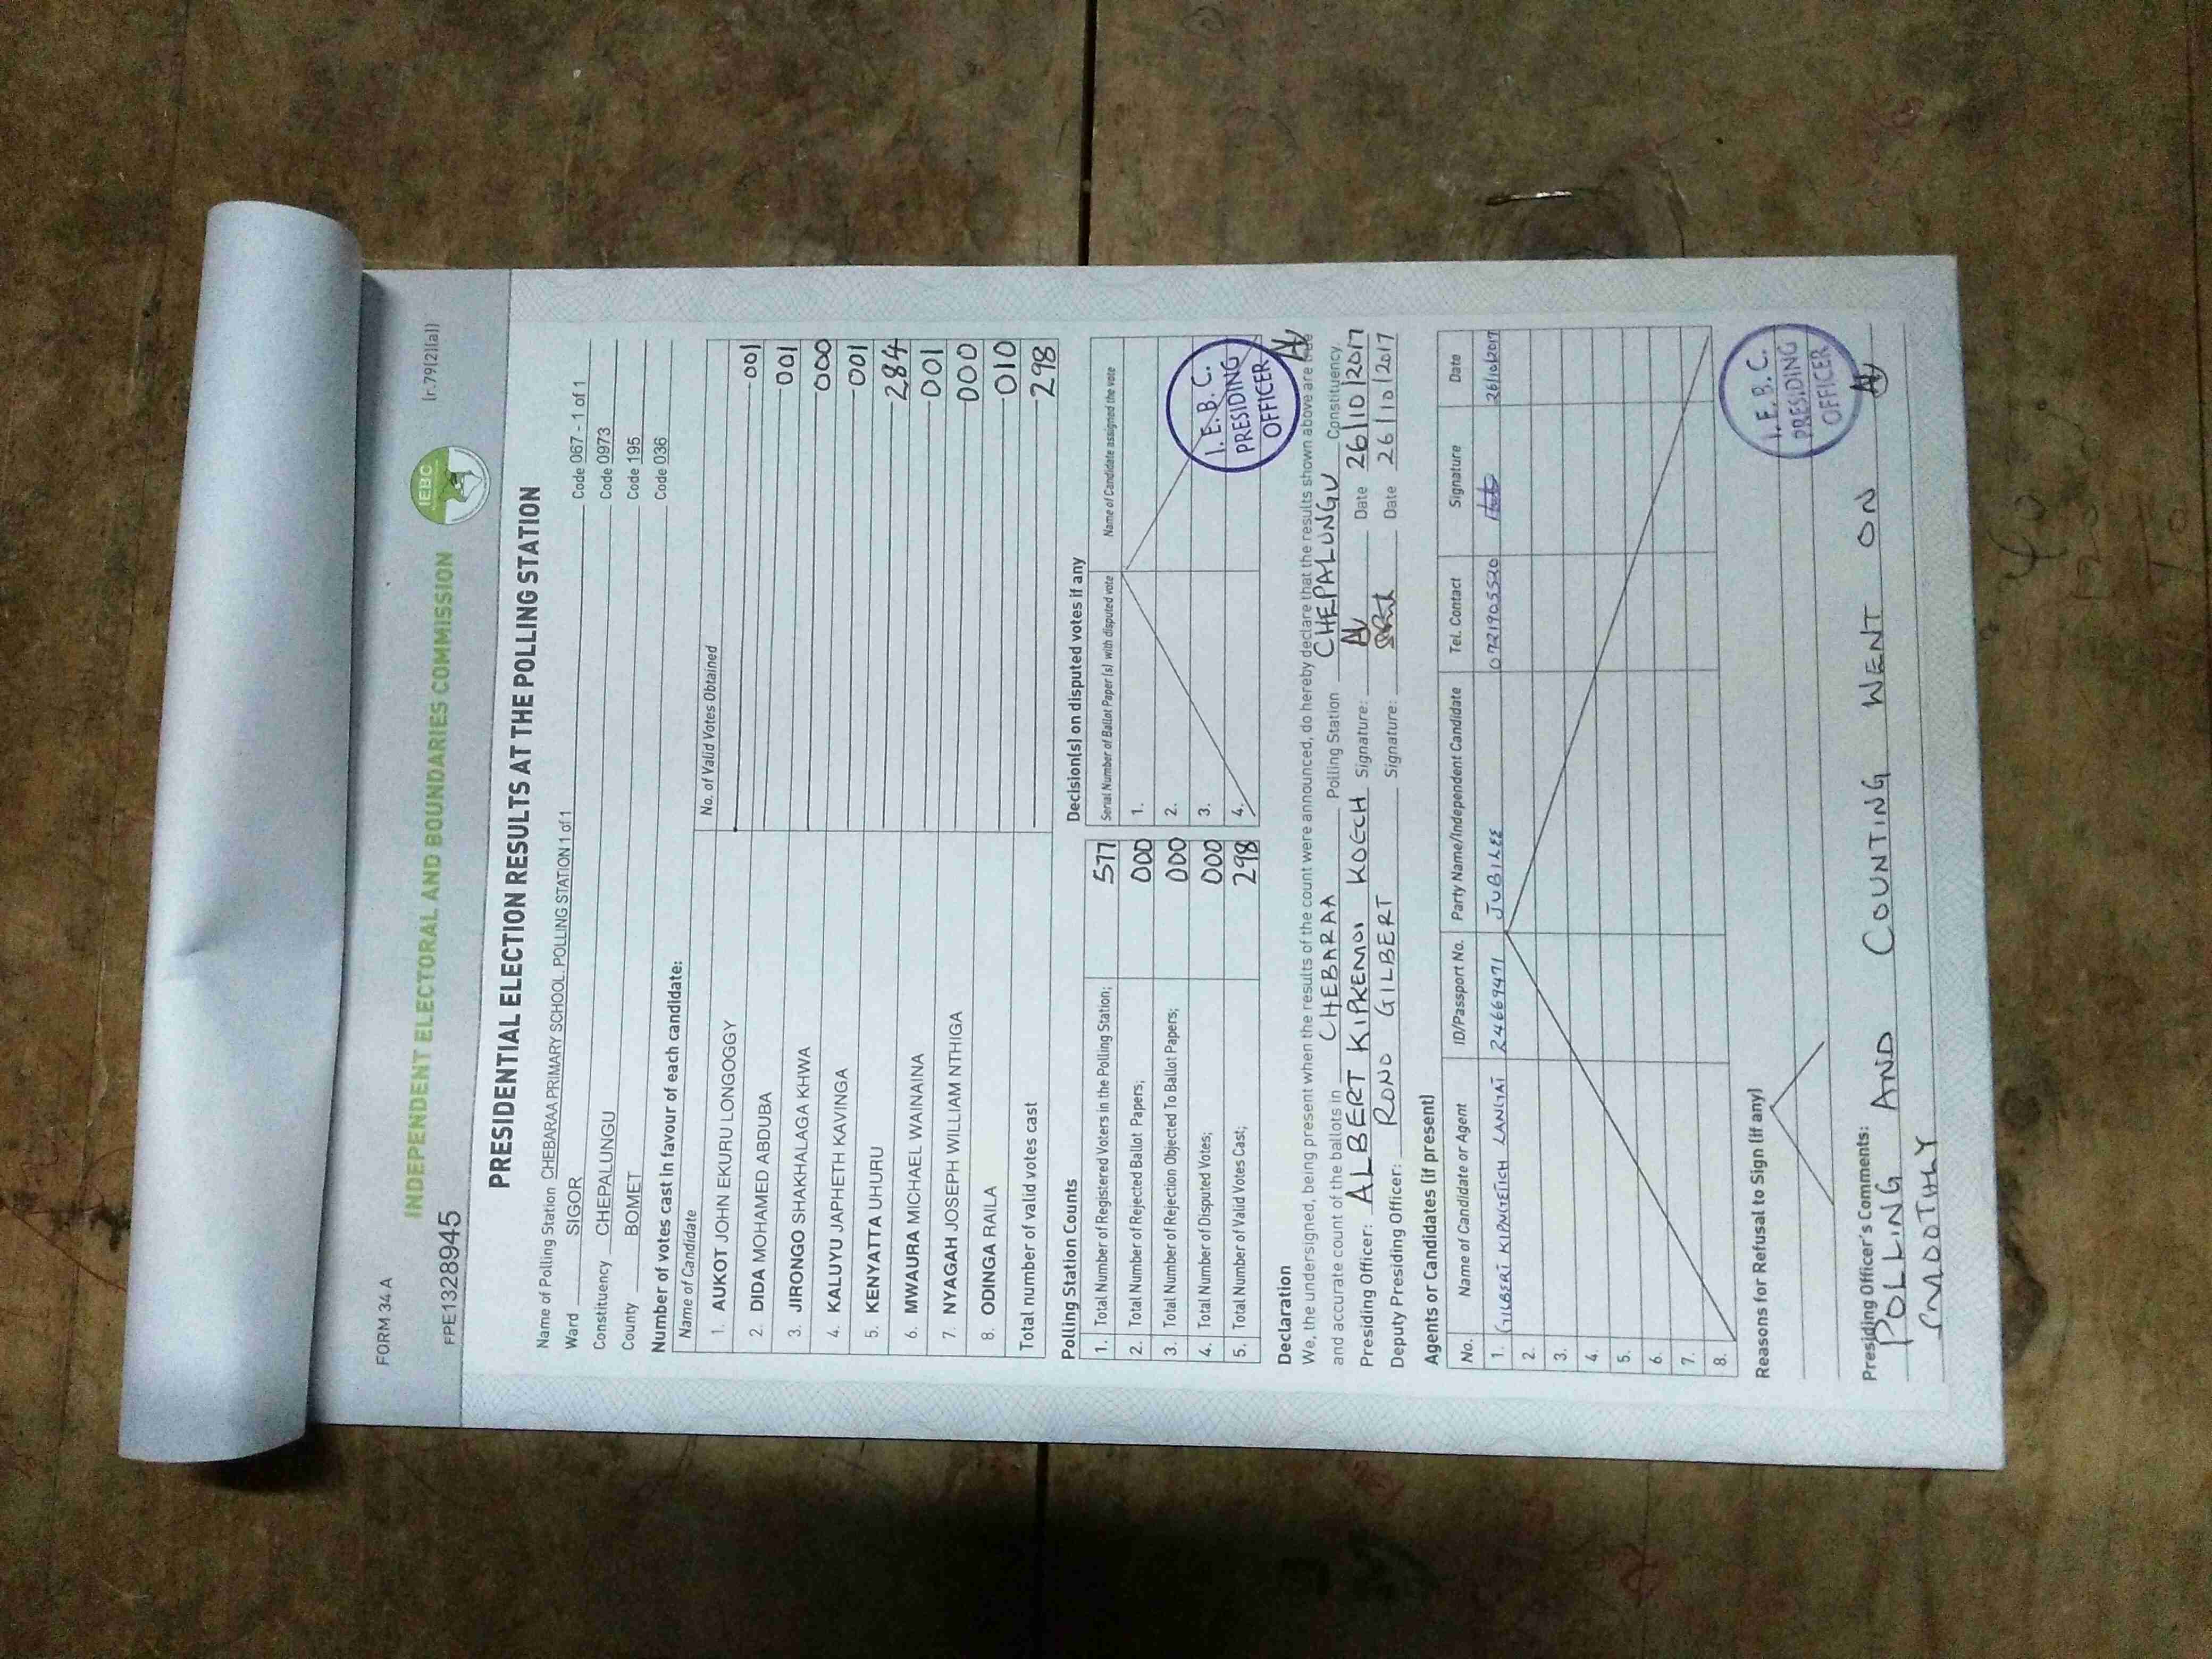 FORM 34 A
[r.79(2)(a)]
INDEPENDENT ELECTORAL AND BOUNDARIES COMMISSION
IEBC
FPE13288945
PRESIDENTIAL ELECTION RESULTS AT THE POLLING STATION
Name of Polling Station CHEBARAA PRIMARY SCHOOL. POLLING STATION 1 of 1 Code 067 - 1 of 1
Ward SIGOR Code 0973
Constituency CHEPALUNGU Code 195
County BOMET Code 036
Number of votes cast in favour of each candidate:
Name of Candidate No. of Valid Votes Obtained
1. AUKOT JOHN EKURU LONGOGGY 001
2. DIDA MOHAMED ABDUBA 001
3. JIRONGO SHAKHALAGA KHWA 000
4. KALUYU JAPHETH KAVINGA 001
5. KENYATTA UHURU 284
6. MWAURA MICHAEL WAINAINA 001
7. NYAGAH JOSEPH WILLIAM NTHIGA 000
8. ODINGA RAILA 010
Total number of valid votes cast 298
Polling Station Counts
1. Total Number of Registered Voters in the Polling Station; 577
2. Total Number of Rejected Ballot Papers; 000
3. Total Number of Rejection Objected To Ballot Papers; 000
4. Total Number of Disputed Votes; 000
5. Total Number of Valid Votes Cast; 298
Decision(s) on disputed votes if any
Serial Number of Ballot Paper(s) with disputed vote Name of Candidate assigned the vote
1.
2.
3.
4.
I.E.B.C.
PRESIDING
OFFICER
Declaration
We, the undersigned, being present when the results of the count were announced, do hereby declare that the results shown above are true
and accurate count of the ballots in CHEBARAA Polling Station CHEPALUNGU Constituency.
Presiding Officer: ALBERT KIPKEMOI KOECH Signature: Date 26/10/2017
Deputy Presiding Officer: RONO GILBERT Signature: Date 26/10/2017
Agents or Candidates (if present)
No. Name of Candidate or Agent ID/Passport No. Party Name/Independent Candidate Tel. Contact Signature Date
1. GILBERT KIPNGETICH LANGAT 24669471 JUBILEE 0721905520 26/10/2017
2.
3.
4.
5.
6.
7.
8.
Reasons for Refusal to Sign (if any)
I.E.B.C.
PRESIDING
OFFICER
Presiding Officer's Comments:
POLLING AND COUNTING WENT ON
SMOOTHLY